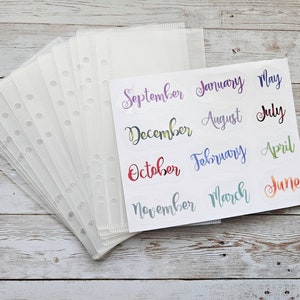 September January May
December August July
October February April
November March June